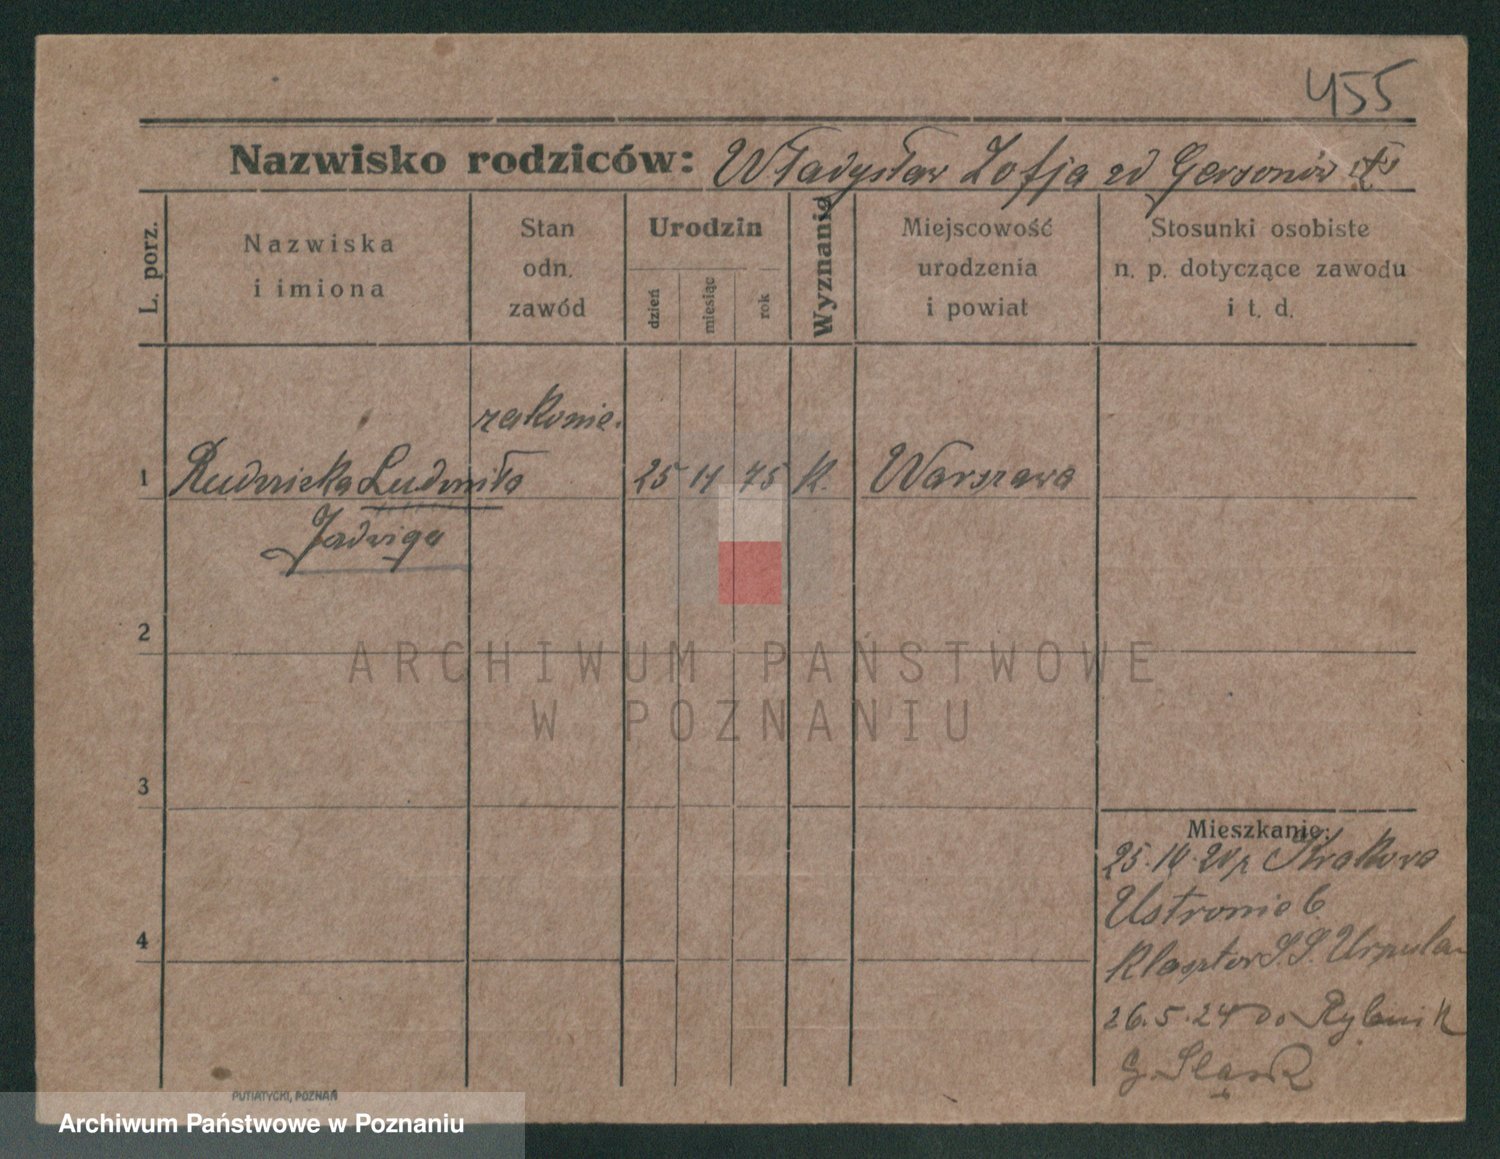 455
Nazwisko rodziców: Władysław Zofja zd Gersonów
L. porz.
Nazwiska i imiona
Stan odn. zawód
Urodzin
dzień
miesiąc
rok
Wyznanie
Miejscowość urodzenia i powiat
Stosunki osobiste n. p. dotyczące zawodu i t. d.
zakonie.
1 Rudnicka Ludmiła 25 11 75 K. Warszawa
Jadwiga
2
ARCHIWUM PAŃSTWOWE
W POZNANIU
3
Mieszkanie:
25. 20 Krakowa
Ustronie 6
Klasztor S.S. Urszulan
4
26.5.24 do Rybnik
G. Śląsk
PUTIATYCKI, POZNAŃ
Archiwum Państwowe w Poznaniu